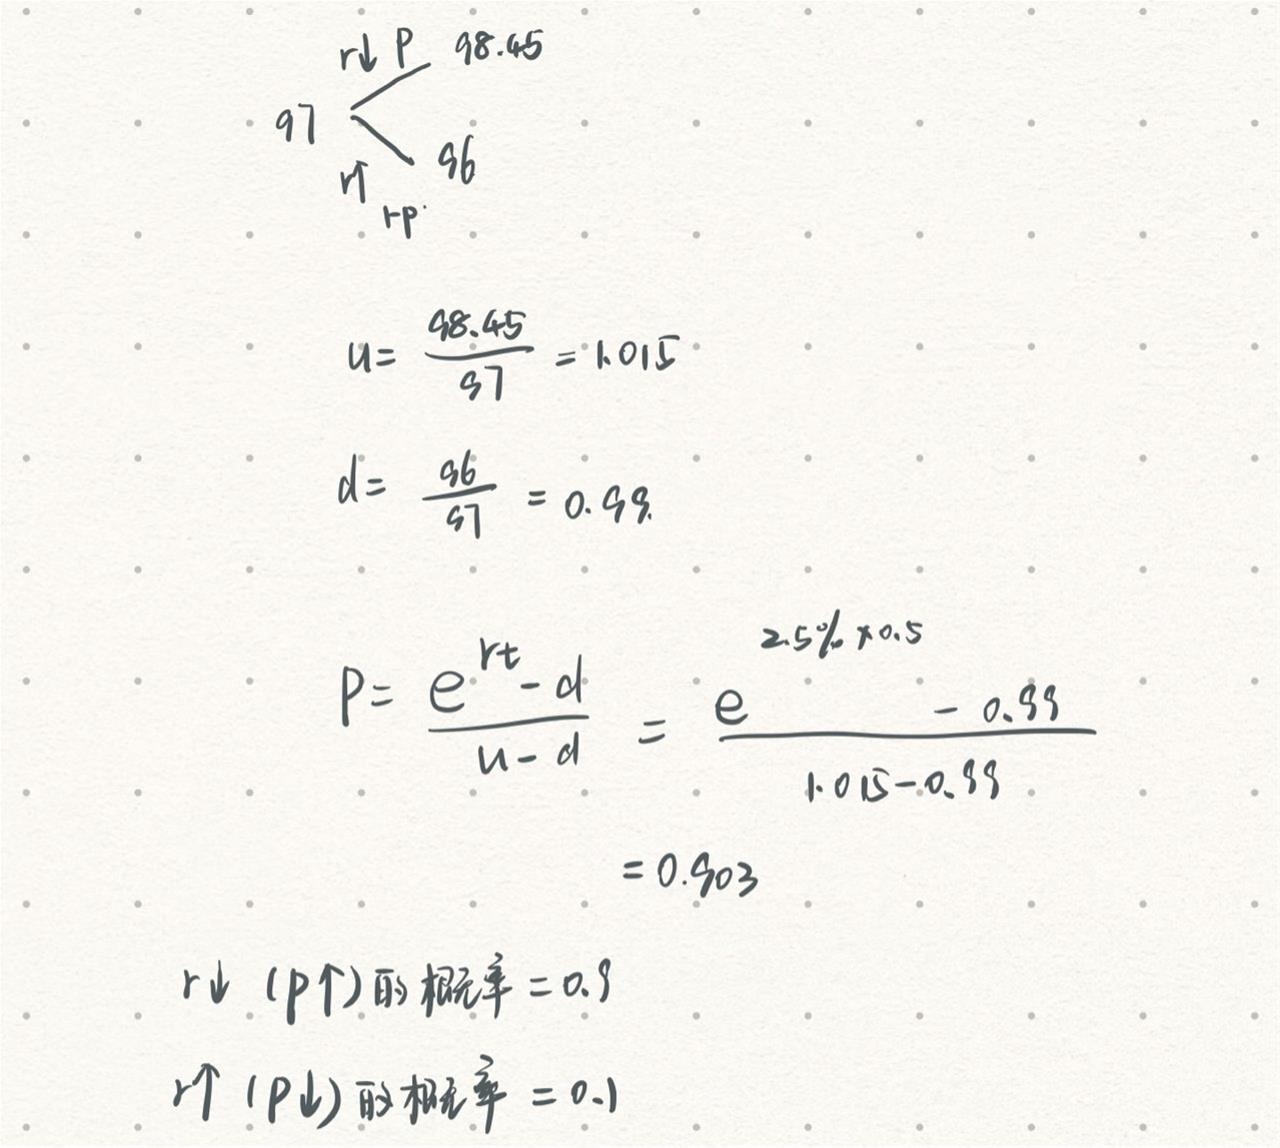 r↓ p 98.45
97
r↑ 96
1-p
u = 98.45 / 97 = 1.015
d = 96 / 97 = 0.99.
P = (e^rt - d) / (u - d) = (e^2.5%×0.5 - 0.99) / (1.015 - 0.99)
= 0.903
r↓ (p↑) 的概率 = 0.9
r↑ (p↓) 的概率 = 0.1